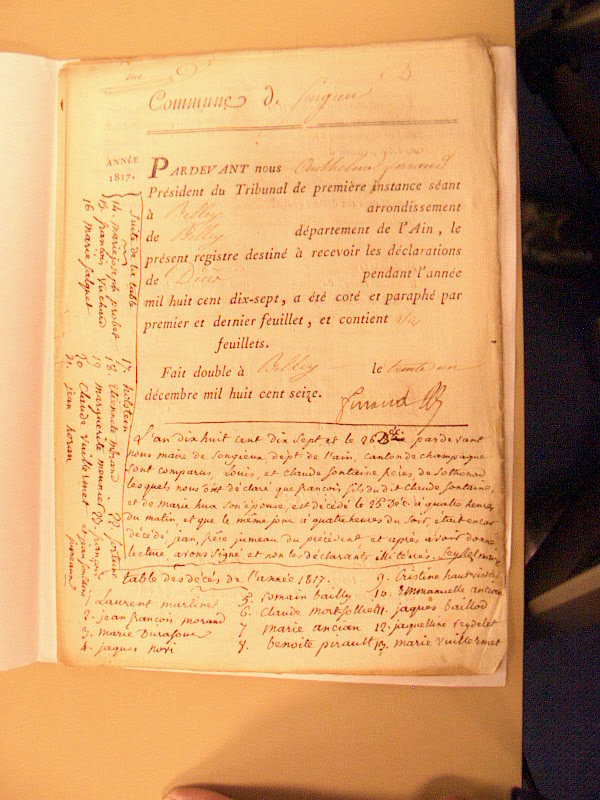 Commune de Songieu
ANNÉE
1817.
PARDEVANT nous Anthelme
Président du Tribunal de première instance séant
à Belley arrondissement
de Belley département de l'Ain, le
présent registre destiné à recevoir les déclarations
de Décès pendant l'année
mil huit cent dix-sept, a été coté et paraphé par
premier et dernier feuillet, et contient six
feuillets.
Fait double à Belley le trente un
décembre mil huit cent seize.
L'an dix huit cent dix sept et le 26 pardevant
nous maire de Songieux dept. de l'ain, canton de champagne
sont comparus, Louis, et Claude fontaine frères, de Sothonod
lesquels nous ont déclaré que françois fils du dit Claude fontaine,
et de marie hua son épouse, est décédé le 25 Dec. à quatre heures
du matin, et que le même jour à quatre heures du soir, etait encor
décédé, jean, frère jumeau du précédent et après avoir donné
lecture, avons signé et non les déclarants illiterés. Seyssel maire
table des décès de l'année 1817.
1. Laurent martinet
2. jean françois morand
3. marie Durafour
4. jaques novi
5. romain bailly
6. Claude
7 marie ancian
8. benoite pirault
9. Cristine
10. Emmanuelle ancian
11. jaques baillod
12. jaquelline reydelet
13. marie vuillermet
Suite de la table
14. marie joseph probat
15. françois vuchard
16 marie jaquet
17. 
18. Etiennette morand
19 marguerite meunier
20 Claude vuillermet
21. jean
22 fontaine
23 françois
et jean fontaine
jumeaux